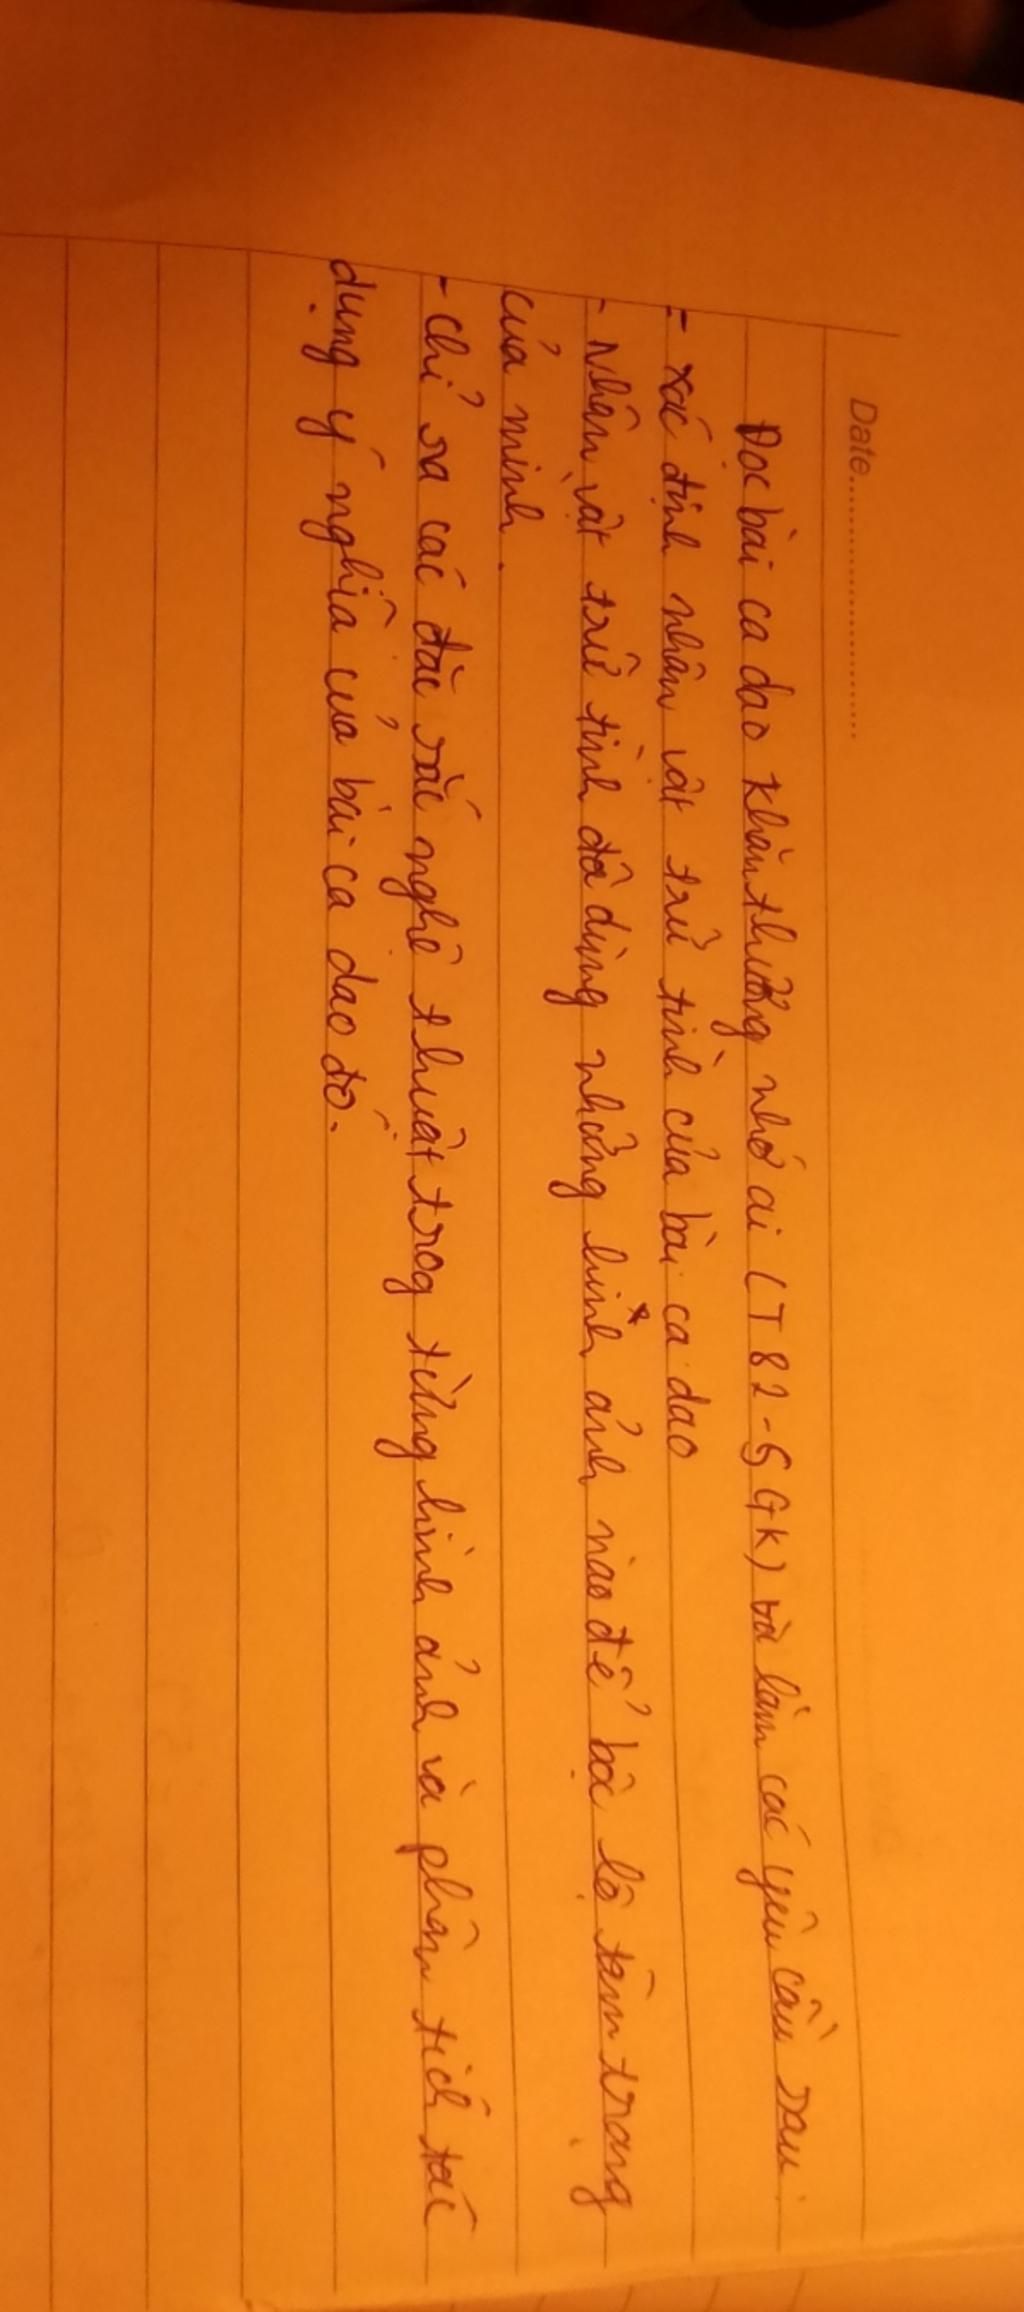 Date....................
Đọc bài ca dao khăn thương nhớ ai (T 82 - SGK) và làm các yêu cầu sau:
- xác định nhân vật trữ tình của bài ca dao
- Nhân vật trữ tình đã dùng những hình ảnh nào để bộc lộ tâm trạng
của mình.
- chỉ ra các đặc sắc nghệ thuật trog từng hình ảnh và phân tích tác
dụng ý nghĩa của bài ca dao đó.